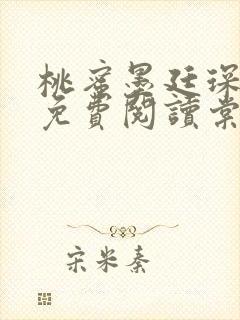 桃蜜墨廷琛
免費閱讀棠
宋米秦